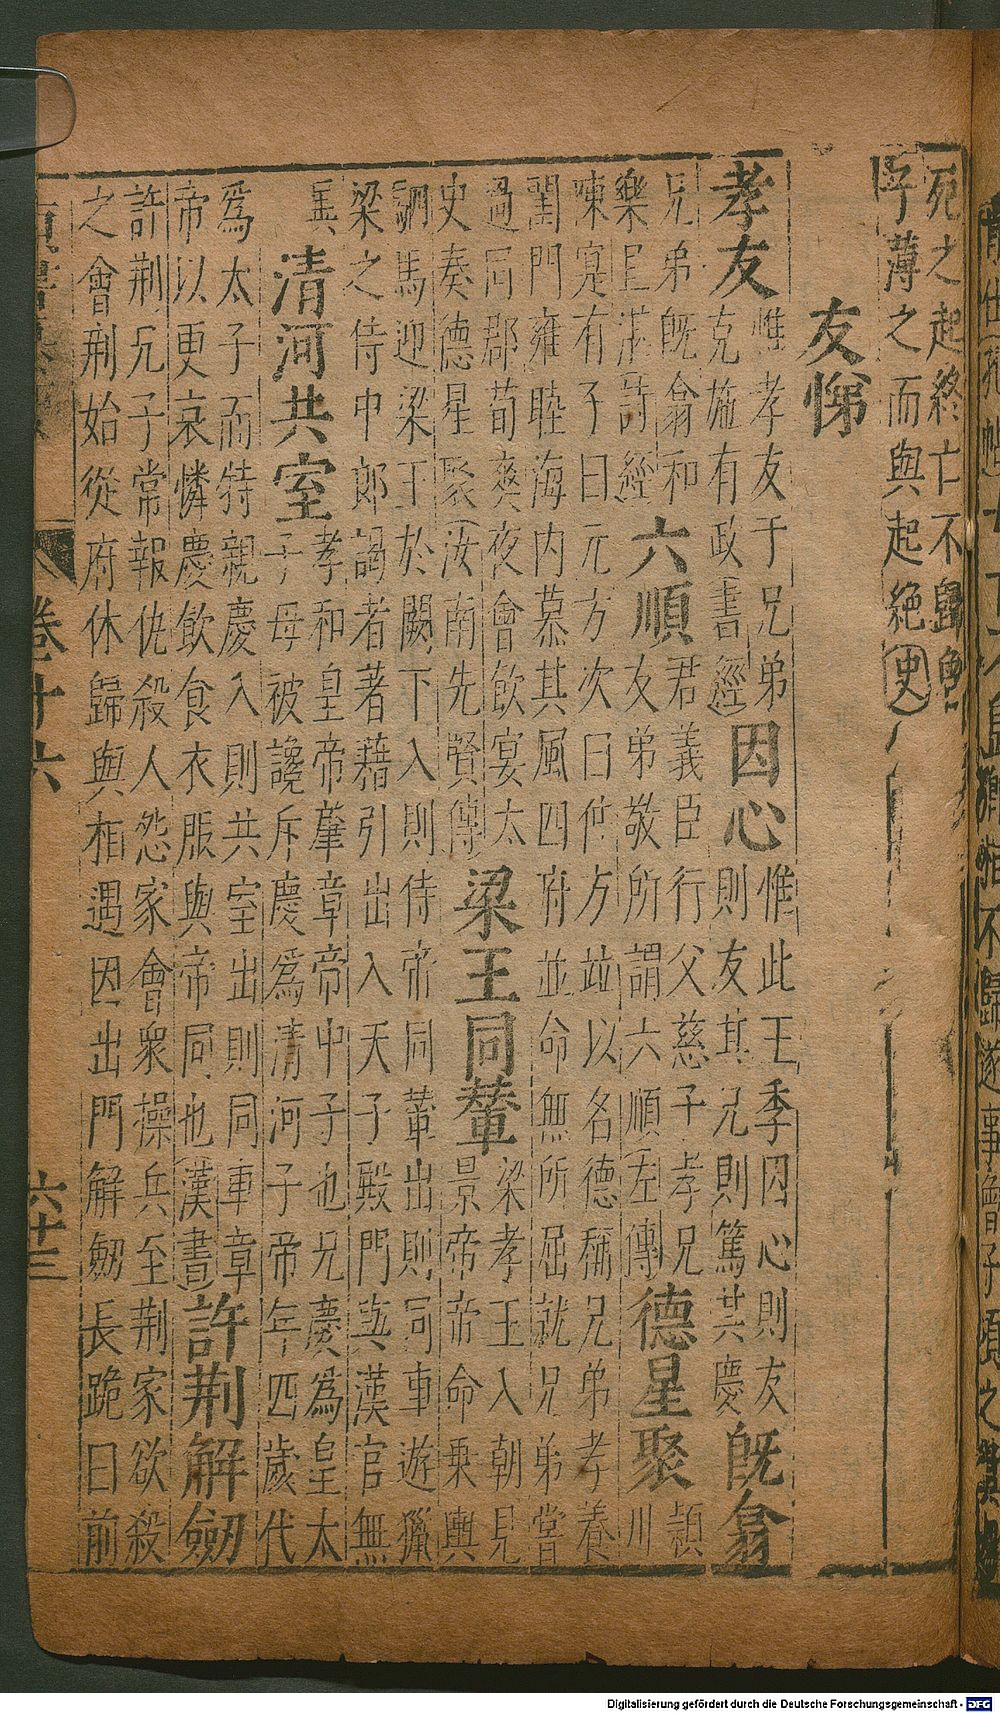 宛之起終亡不歸
子薄之而與起絶史
友悌
孝友惟孝友于兄弟
克施有政書經
因心惟此王季因心則友
則友其兄則篤其慶
既翕
兄弟既翕和
樂且湛詩經
六順君義臣行父慈子孝兄
友弟敬所謂六順左傳
德星聚潁
川
陳寔有子曰元方次曰仲方並以名德稱兄弟孝養
閨門雍睦海内慕其風四府並命無所屈就兄弟嘗
過同郡荀爽夜會飲宴太
史奏德星聚汝南先賢傳
梁王同輦梁孝王入朝見
景帝帝命乗輿
駟馬迎梁王於闕下入則侍帝同輦出則同車遊獵
梁之侍中郎謁者著藉引出入天子殿門與漢官無
異
清河共室孝和皇帝肇章帝中子也兄慶為皇太
子子母被讒斥慶爲清河子帝年四歲代
爲太子而特親慶入則共室出則同車章
帝以更哀憐慶飲食衣服與帝同也漢書
許荆解劒
許荆兄子常報仇殺人怨家會衆操兵至荆家欲殺
之會荆始從府休歸與相遇因出門解劒長跪曰前
卷十六
六十三
Digitalisierung gefördert durch die Deutsche Forschungsgemeinschaft - DFG